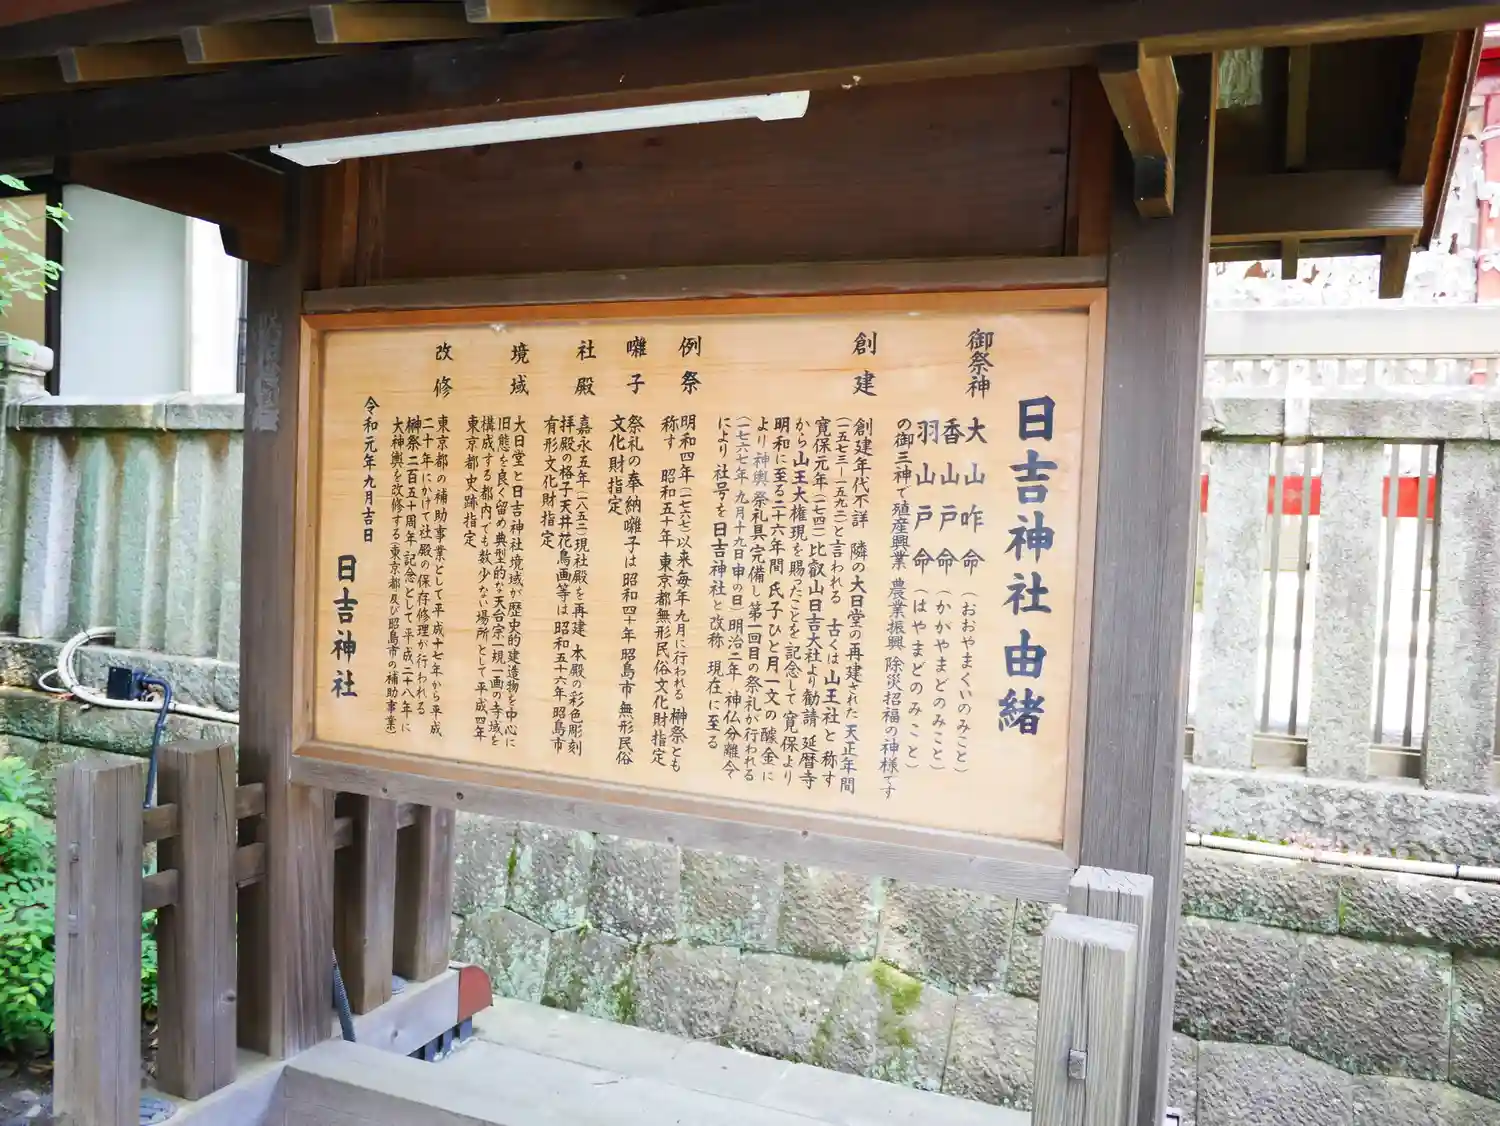 日吉神社由緒
御祭神
大山咋命（おおやまくいのみこと）
香山戸命（かがやまどのみこと）
羽山戸命（はやまどのみこと）
の御三神で殖産興業 農業振興 除災招福の神様です
創建
創建年代不詳 隣の大日堂の再建された天正年間
（一五七三―一五九二）と言われる 古くは山王社と称す
寛保元年（一七四一）比叡山日吉大社より勧請 延暦寺
から山王大権現を賜ったことを記念して寛保より
明和に至る二十六年間 氏子ひと月一文の醵金に
より神輿祭礼具完備し第一回目の祭礼が行われる
（一七六七年九月十九日申の日）明治二年 神仏分離令
により社号を日吉神社と改称 現在に至る
例祭
明和四年（一七六七）以来毎年九月に行われる 榊祭とも
称す 昭和五十年 東京都無形民俗文化財指定
囃子
祭礼の奉納囃子は昭和四十年 昭島市無形民俗
文化財指定
社殿
嘉永五年（一八五二）現社殿を再建 本殿の彩色彫刻
拝殿の格子天井花鳥画等は昭和五十六年昭島市
有形文化財指定
境域
大日堂と日吉神社境域が歴史的建造物を中心に
旧態を良く留め典型的な天台宗一規一画の寺域を
構成する都内でも数少ない場所として平成四年
東京都史跡指定
改修
東京都の補助事業として平成十七年から平成
二十年にかけて社殿の保存修理が行われる
榊祭二百五十周年記念として平成二十八年に
大神輿を改修する（東京都及び昭島市の補助事業）
令和元年九月吉日
日吉神社